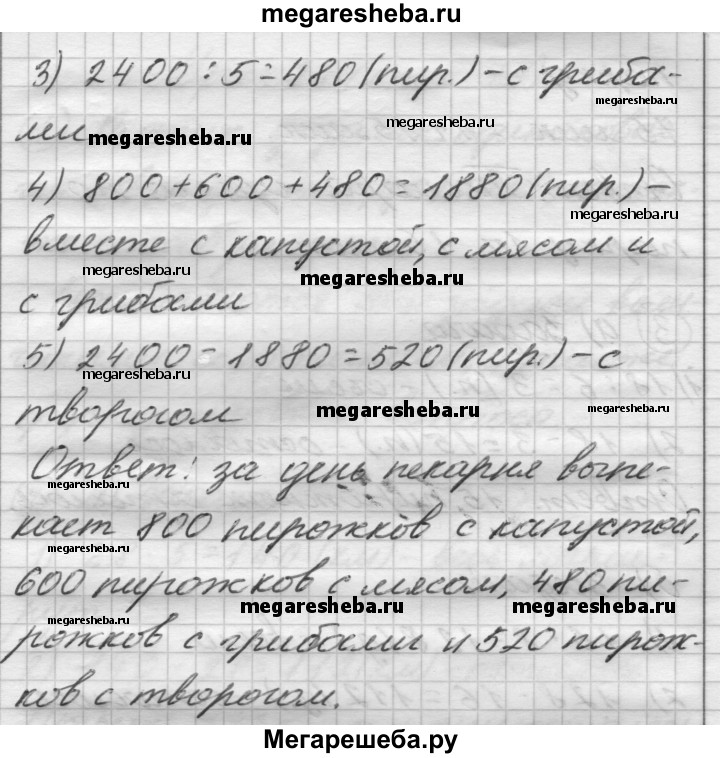 megaresheba.ru
3) 2400 : 5 = 480 (пир.) – с гриба-
megaresheba.ru
ми
megaresheba.ru
megaresheba.ru
4) 800 + 600 + 480 = 1880 (пир.) –
megaresheba.ru
вместе с капустой, с мясом и
megaresheba.ru
megaresheba.ru
с грибами
5) 2400 – 1880 = 520 (пир.) – с
megaresheba.ru
творогом
megaresheba.ru
megaresheba.ru
Ответ: за день пекарня выпе-
кает 800 пирожков с капустой,
megaresheba.ru
600 пирожков с мясом, 480 пи-
megaresheba.ru
megaresheba.ru
рожков с грибами и 520 пирож-
megaresheba.ru
ков с творогом.
megaresheba.ru
Мегарешеба.ру